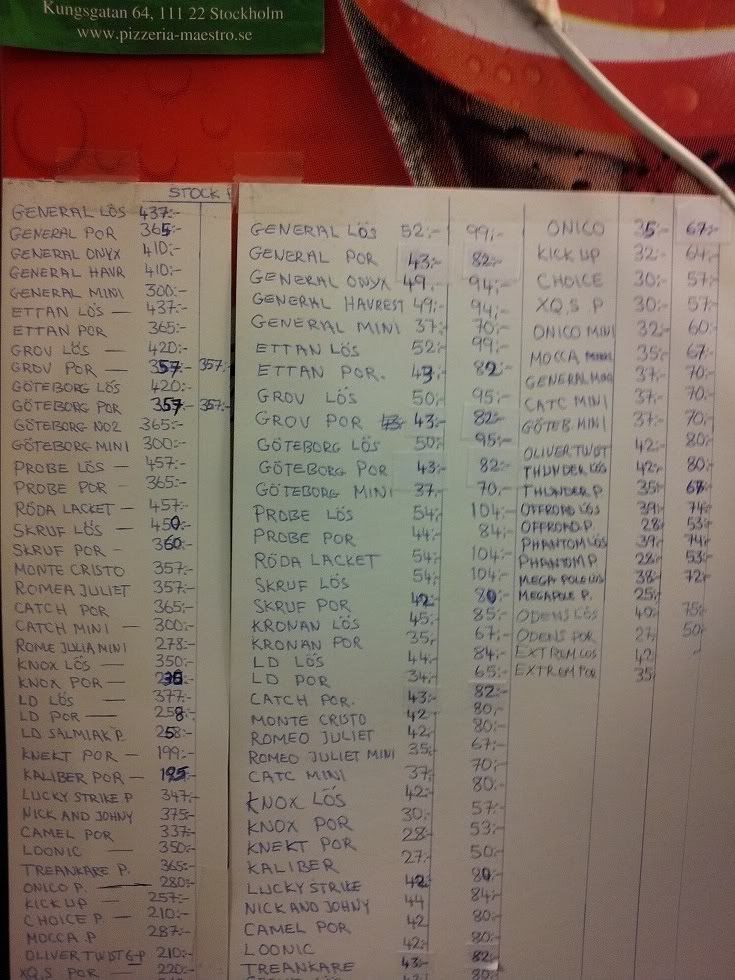 Kungsgatan 64, 111 22 Stockholm
www.pizzeria-maestro.se
STOCK
GENERAL LÖS 437:-
GENERAL POR 365:-
GENERAL ONYX 410:-
GENERAL HAVR 410:-
GENERAL MINI 300:-
ETTAN LÖS — 437:-
ETTAN POR 365:-
GROV LÖS — 420:-
GROV POR — 357:- 357:-
GÖTEBORG LÖS 420:-
GÖTEBORG POR 357:- 357:-
GÖTEBORG NO2 365:-
GÖTEBORG MINI 300:-
PROBE LÖS — 457:-
PROBE POR — 365:-
RÖDA LACKET — 457:-
SKRUF LÖS — 450:-
SKRUF POR - 360:-
MONTE CRISTO 357:-
ROMEA JULIET 357:-
CATCH POR 365:-
CATCH MINI — 300:-
ROME JULIA MINI 278:-
KNOX LÖS — 350:-
KNOX POR —
LD LÖS — 377:-
LD POR — 258:-
LD SALMIAK P. 258:-
KNEKT POR — 199:-
KALIBER POR — 195:-
LUCKY STRIKE P 347:-
NICK AND JOHNY 375:-
CAMEL POR 337:-
LOONIC — 350:-
TREANKARE P. 365:-
ONICO P. — 280:-
KICK UP — 257:-
CHOICE P — 210:-
MOCCA P 287:-
OLIVER TWIST 6-P 210:-
XQ.S POR — 220:-
GENERAL LÖS 52:- 99:-
GENERAL POR 43:- 82:-
GENERAL ONYX 49:- 94:-
GENERAL HAVREST 49:- 94:-
GENERAL MINI 37:- 70:-
ETTAN LÖS 52:- 99:-
ETTAN POR. 43:- 82:-
GROV LÖS 50:- 95:-
GROV POR 43:- 82:-
GÖTEBORG LÖS 50:- 95:-
GÖTEBORG POR 43:- 82:-
GÖTEBORG MINI 37:- 70:-
PROBE LÖS 54:- 104:-
PROBE POR 44:- 84:-
RÖDA LACKET 54:- 104:-
SKRUF LÖS 54:- 104:-
SKRUF POR 42:- 80:-
KRONAN LÖS 45:- 85:-
KRONAN POR 35:- 67:-
LD LÖS 44:- 84:-
LD POR 34:- 65:-
CATCH POR. 43:- 82:-
MONTE CRISTO 42:- 80:-
ROMEO JULIET 42:- 80:-
ROMEO JULIET MINI 35:- 67:-
CATC MINI 37:- 70:-
KNOX LÖS 42:- 80:-
KNOX POR 30:- 57:-
KNEKT POR 28:- 53:-
KALIBER 27:- 50:-
LUCKY STRIKE 42:- 80:-
NICK AND JOHNY 44 84:-
CAMEL POR 42 80:-
LOONIC 42:- 80:-
TREANKARE 43:- 82:-
ONICO 35:- 67:-
KICK UP 32:- 64:-
CHOICE 30:- 57:-
XQ.S P 30:- 57:-
ONICO MINI 32:- 60:-
MOCCA 35:- 67:-
GENERAL 37:- 70:-
CATC MINI 37:- 70:-
GÖTEB. MINI 37:- 70:-
OLIVER TWIST 42:- 80:-
THUNDER LÖS 42:- 80:-
THUNDER P. 35:- 68:-
OFFROAD LÖS 39:- 74:-
OFFROAD P. 28:- 53:-
PHANTOM LÖS 39:- 74:-
PHANTOM P 28:- 53:-
MEGA POLE LÖS 38:- 72:-
MEGAPOLE P. 25:-
ODENS LÖS 40:- 75:-
ODENS POR 27:- 50:-
EXTREM LÖS 42
EXTREM POR 35